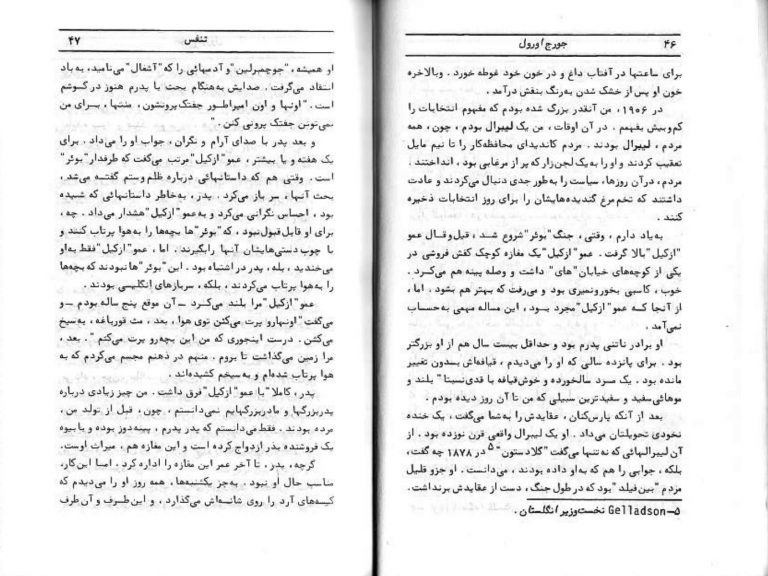 ۴۶ جورج اورول
برای ساعتها در آفتاب داغ و در خون خود غوطه خورد . وبالاخره
خون او پس از خشک شدن به‌رنگ بنفش درآمد .
در ۱۹۰۶، من آنقدر بزرگ شده بودم که مفهوم انتخابات را
کم‌وبیش بفهمم . در آن اوقات ، من یک لیبرال بودم ، چون ، همه
مردم ، لیبرال بودند . مردم کاندیدای محافظه‌کار را تا نیم مایل
تعقیب کردند و او را به یک لجن‌زار که پر از مرغابی بود ، انداختند .
مردم ، در آن روزها، سیاست را به‌طور جدی دنبال می‌کردند و عادت
داشتند که تخم‌مرغ گندیده‌هایشان را برای روز انتخابات ذخیره
کنند .
به‌یاد دارم ، وقتی ، جنگ "بوئر" شروع شد ، قیل‌وقال عمو
"ازکیل" بالا گرفت . عمو "ازکیل" یک مغازه کوچک کفش فروشی در
یکی از کوچه‌های خیابان "های" داشت و وصله پینه هم می‌کرد .
خوب ، کاسبی بخورونمیری بود و می‌رفت که بهتر هم بشود . اما ،
از آنجا که عمو "ازکیل" مجرد بود ، این مساله مهمی به‌حساب
نمی‌آمد .
او برادر ناتنی پدرم بود و حداقل بیست سال هم از او بزرگتر
بود . برای پانزده سالی که او را می‌دیدم ، قیافه‌اش بدون تغییر
مانده بود . یک مرد سالخورده و خوش‌قیافه با قدی نسبتا" بلند و
موهائی سفید و سفیدترین سبیلی که من تا آن روز دیده بودم .
بعد از آنکه پارس‌کنان ، عقایدش را به‌شما می‌گفت ، یک خنده
نخودی تحویلتان می‌داد . او یک لیبرال واقعی قرن نوزده بود . از
آن لیبرالهائی که نه‌تنها می‌گفت "گلادستون"۵ در ۱۸۷۸ چه گفت،
بلکه ، جوابی را هم که به‌او داده بودند ، می‌دانست . او جزو قلیل
مردم "بین‌فیلد" بود که در طول جنگ ، دست از عقایدش برنداشت .
۵– Gelladson نخست‌وزیر انگلستان .
تنفس ۴۷
او همیشه ، "جوچمبرلین" و آدمهائی را که "آشغال" می‌نامید، به‌باد
انتقاد می‌گرفت . صدایش به‌هنگام بحث با پدرم هنوز در گوشم
است . "اونها و اون امپراطور جفتک‌پرونشون ، منتها ، برای من
نمی‌تونن جفتک پرونی کنن . "
و بعد پدر با صدای آرام و نگران ، جواب او را می‌داد . برای
یک هفته و یا بیشتر ، عمو "ازکیل" مرتب می‌گفت که طرفدار "بوئر"
است . وقتی هم که داستانهائی درباره ظلم وستم گفته می‌شد ،
بحث آنها ، سر باز می‌کرد . پدر ، به‌خاطر داستانهائی که شنیده
بود ، احساس نگرانی می‌کرد و به‌عمو "ازکیل" هشدار می‌داد . چه ،
برای او قابل قبول‌نبود ، که "بوئر"ها بچه‌ها را به‌هوا پرتاب کنند و
با چوب دستی‌هایشان آنها رابگیرند . اما ، عمو "ازکیل" فقط به‌او
می‌خندید ، بله ، پدر در اشتباه بود . این "بوئر"ها نبودند که بچه‌ها
را به‌هوا پرتاب می‌کردند ، بلکه ، سربازهای انگلیسی بودند .
عمو "ازکیل" مرا بلند می‌کرد – آن موقع پنج ساله بودم – و
می‌گفت "اونهارو پرت می‌کنن توی هوا ، بعد ، مث قورباغه ، به‌سیخ
می‌کشن . درست اینجوری که من این بچه‌رو پرت می‌کنم " . بعد ،
مرا زمین می‌گذاشت تا بروم . منهم در ذهنم مجسم می‌کردم که به
هوا پرتاب شده‌ام و به‌سیخم کشیده‌اند .
پدر ، کاملا" با عمو "ازکیل" فرق داشت . من چیز زیادی درباره
پدربزرگها و مادربزرگهایم نمی‌دانستم ، چون ، قبل از تولد من ،
مرده بودند . فقط می‌دانستم که پدر پدرم ، پینه‌دوز بوده و با بیوه
یک فروشنده بذر ازدواج کرده است و این مغازه هم ، میراث اوست.
گرچه ، پدر ، تا آخر عمر این مغازه را اداره کرد . اما این‌کار،
مناسب حال او نبود . به‌جز یکشنبه‌ها ، همه روز او را می‌دیدم که
کیسه‌های آرد را روی شانه‌اش می‌گذارد ، و این‌طرف و آن‌طرف